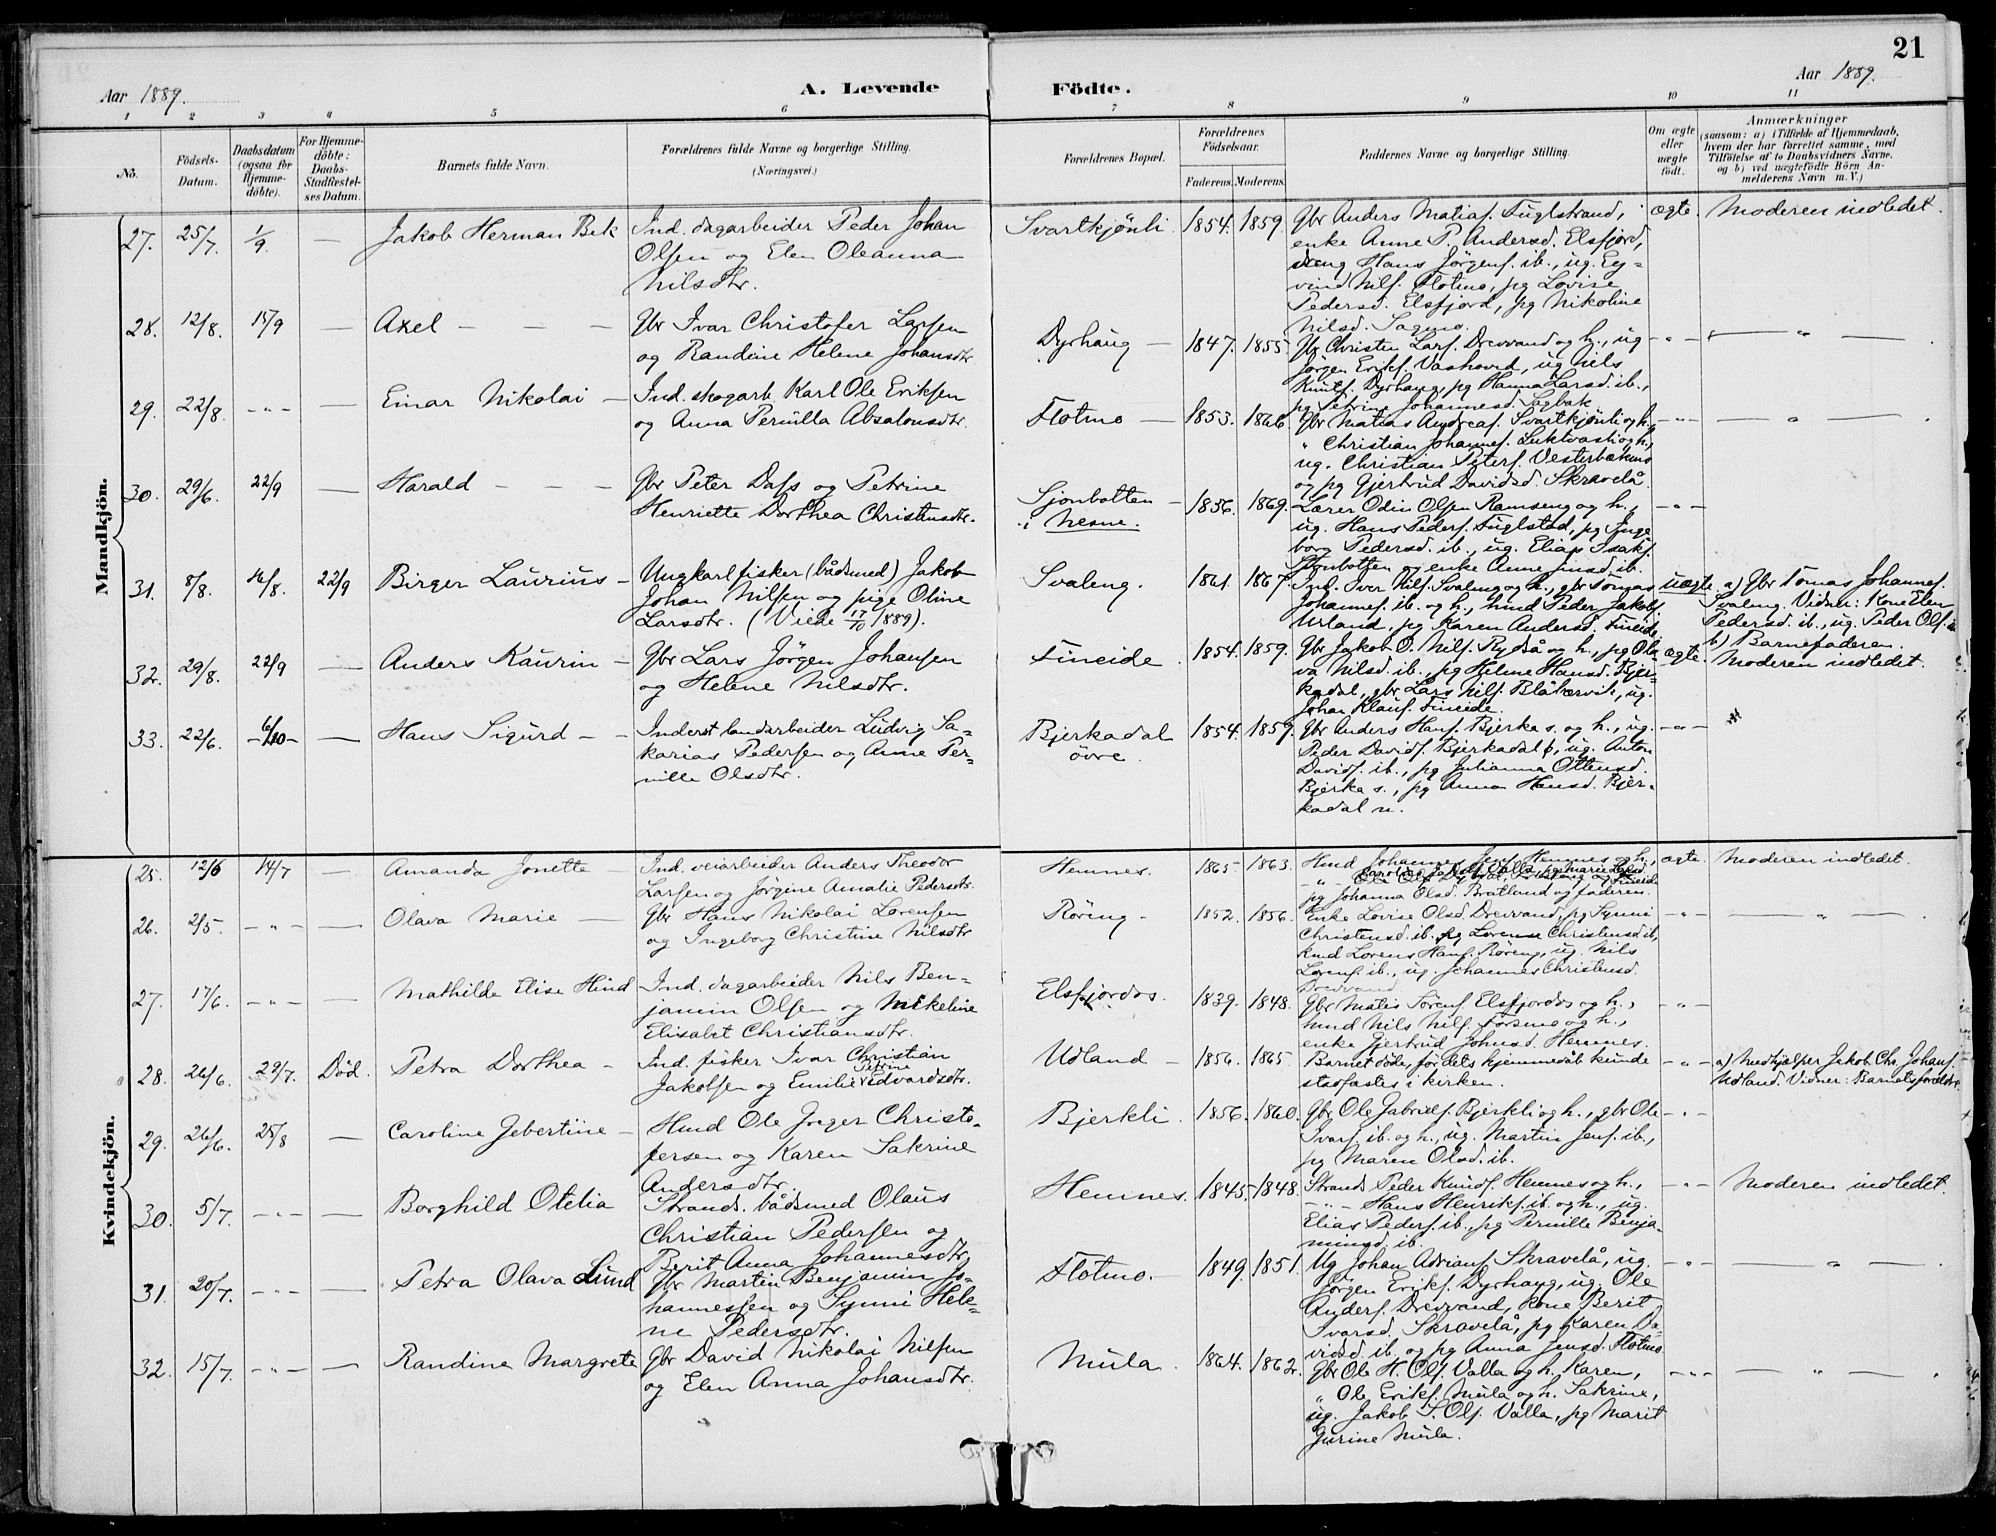 21
Aar 1889.
A. Levende
Födte.
Aar 1889.
1 2 3 4 5 6 7 8 9 10 11
No.
Födsels-
Datum.
Daabsdatum
(ogsaa for
Hjemme-
döbte).
For Hjemme-
döbte:
Daabs-
Stadfæstel-
ses Datum.
Barnets fulde Navn.
Forældrenes fulde Navne og borgerlige Stilling.
(Næringsvei.)
Forældrenes Bopæl.
Forældrenes
Födselsaar.
Faderens. Moderens.
Faddernes Navne og borgerlige Stilling.
Om ægte
eller
uægte
födt.
Anmærkninger
(saasom: a) i Tilfælde af Hjemmedaab,
hvem der har forrettet samme, med
Tilföielse af to Daabsvidners Navne,
og b) ved uægtefödte Börn An-
melderens Navn m. V.)
Mandkjön.
27. 25/7. 1/9. — Jakob Herman Bek
Ind. dagarbeider Peder Johan
Olsen og Elen Oleanna
Nilsdtr.
Svartkjönli 1854. 1859.
Gbr Anders Matias. Fuglstrand,
enke Anne P. Andersd. Elsfjord,
dreng Hans Jörgens. ib., ug. Ey-
vind Nils. Flotmo, pg Lovise
Pedersd. Elsfjord, pg Nikoline
Nilsd. Sagmo.
ægte. Moderen indledet.
28. 12/8. 15/9 — Axel — — —
Gbr Ivar Christofer Larsen
og Randine Helene Johansdtr
Dyrhaug — 1847. 1855
Gbr Christen Lars. Drevvand og h., ug
Jörgen Eriks. Vashoved, ug Nils
Knuts. Dyrhaug, pg Hanna Larsd. ib.,
pg Petrine Johannesd. Sagbak.
— " — — " —
29. 22/8. - " - — Einar Nikolai —
Ind. skogarb. Karl Ole Eriksen
og Anna Pernilla Absalonsdtr.
Flotmo — 1853. 1866
Gbr Matias Andreas. Svartkjönli og h.,
" Christian Johannes. Luktvasli og h.,
ug. Christian Peters. Vesterbækmo
og pg Gjertrud Davidsd. Skravelå.
— " — — " —
30. 29/6. 22/9 — Harald — — —
Gbr Peter Dass og Petrine
Henriette Dorthea Christensdtr.
Sjonbotten —
i Nesne.
1856. 1869.
Lærer Odin Olsen Ramseng og h.,
ug. Hans Peders. Fuglstad, pg Inge
borg Pedersd. ib., ug. Elias Isaks.
Sjonbotten og enke Anne Jensd. ib.
— " —
31. 8/8. 16/8. 22/9 Birger Laurius —
Ungkarl fisker (bådsmed) Jakob
Johan Nilsen og pige Oline
Larsdtr. (Viede 17/10 1889).
Svaleng. 1861. 1867.
Ind. Iver Nils. Svaleng og h., gbr Tomas
Johannes. ib. og h., hmd Peder Jakobs.
Urland, pg Karen Andersd. Fineide.
uægte. a) Gbr Tomas Johannes.
Svaleng. Vidner: Kone Elen
Pedersd. ib., ug. Peder Ols. ib
b) Barnefaderen.
32. 29/8. 22/9 — Anders Kaurin —
Gbr Lars Jörgen Johansen
og Helene Nilsdtr.
Fineide. 1854. 1859.
Gbr Jakob O. Nils. Rydså og h., pg Ola-
va Nilsd. ib., pg Helene Hansd. Bjer-
kadal, gbr Lars Nils. Blåkærvik, ug.
Johan Klaus. Fineide.
ægte. Moderen indledet.
33. 22/6. — 6/10 — Hans Sigurd — —
Inderst landarbeider Ludvig Sa-
karias Pedersen og Anne Per-
nille Olsdtr.
Bjerkadal
övre.
1854. 1859.
Gbr Anders Hans. Bjerka s. og h., ug.
Peder Davids. Bjerkadal ö, ug. Anton
Davids. ib., pg Julianna Ottensd.
Bjerka s., pg Anna Hansd. Bjer-
kadal n.
— " — "
Kvindekjön.
25. 12/6 14/7 — Amanda Jonette —
Ind. veiarbeider Anders Theodor
Larsen og Jörgine Amalie Pedersdtr.
Hemnes. 1865 1863.
Hmd Johannes Jens. Hemnes og h.,
pg Johanna Olsd. Bratland og faderen.
ægte. Moderen indledet.
26. 2/5. - " - — Olava Marie —
Gbr Hans Nikolai Lorensen
og Ingeborg Christine Nilsdtr
Röreng — 1852. 1856.
Enke Lovise Olsd. Drevvand, pg Synni
Christensd. ib., pg Lorense Christensd. ib,
hmd Lorens Hans. Röreng, ug. Nils
Lorens. ib., ug. Johannes Christens.
Drevvand.
— " — — " —
27. 17/6. - " - — Mathilde Elise Hind
Ind. dagarbeider Nils Ben-
jamin Olsen og Mikeline
Elisabet Christiansdtr.
Elsfjordos. 1839. 1848.
Gbr Matis Sörens. Elsfjordos og h.,
hmd Nils Nils. Forsmo og h.,
enke Gjertrud Johnsd. Hemnes.
— " —
28. 26/6. 29/7. Död. Petra Dorthea —
Ind. fisker Ivar Christian
Jakobsen og Emilie Petrine Edvardsdtr.
Udland — 1856. 1865
Barnet döde, för dets hjemmedåb kunde
stadfæstes i kirken.
— " — a) Medhjælper Jakob Chr. Johans.
Udland. Vidner: Barnets forældre
29. 26/6. 25/8 — Caroline Jebertine —
Hmd Ole Greger Christo-
fersen og Karen Sakrine
Andersdtr.
Bjerkli. 1856. 1860.
Gbr Ole Gabriels. Bjerkli og h., gbr Ole
Ivars. ib. og h., ug. Martin Jens. ib.,
pg Maren Olsd. ib.
— " —
30. 5/7. - " - — Borghild Otelia
Strands. bådsmed Olaus
Christian Pedersen og
Berit Anna Johannesdtr.
Hemnes. 1845. 1848.
Strands. Peder Knuds. Hemnes og h.,
— " — Hans Henriks. ib. og h., ug.
Elias Peders. ib., pg Pernille Benja-
minsd. ib.
— " — Moderen indledet.
31. 20/7. - " - — Petra Olava Lund
Gbr Martin Benjamin Jo-
hannessen og Synni Hele-
ne Pedersdtr.
Flotmo. — 1849. 1851.
Ug Johan Adrians. Skravelå, ug.
Jörgen Eriks. Dyrhaug, ug. Ole
Anders. Drevvand, kone Berit
Ivarsd. Skravelå, pg Karen Da-
vidsd. ib. og pg Anna Jensd. Flotmo
— " — — " —
32. 15/7. - " - — Randina Margrete
Gbr David Nikolai Nilsen
og Elen Anna Johansdtr.
Mula. 1864. 1862.
Gbr Ole H. Ols. Valla og h. Karen,
" Ole Eriks. Mula og h. Sakrine,
ug. Jakob S. Ols. Valla, pg Marit
Jurine Mula.
— " — — " —